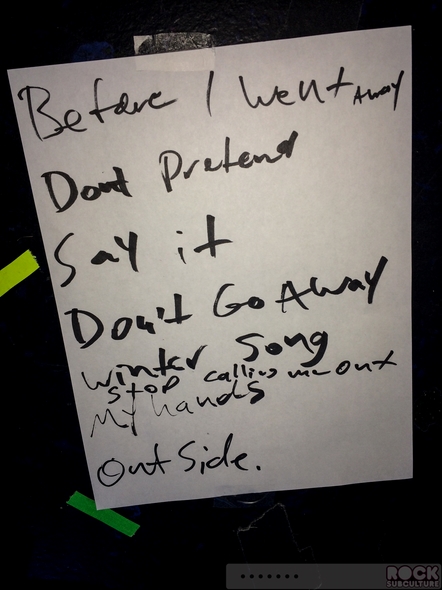 Before I went Away
Dont Pretend
Say it
Don't Go Away
winter song
stop calling me out
My hands
Outside.
ROCK
SUBCULTURE